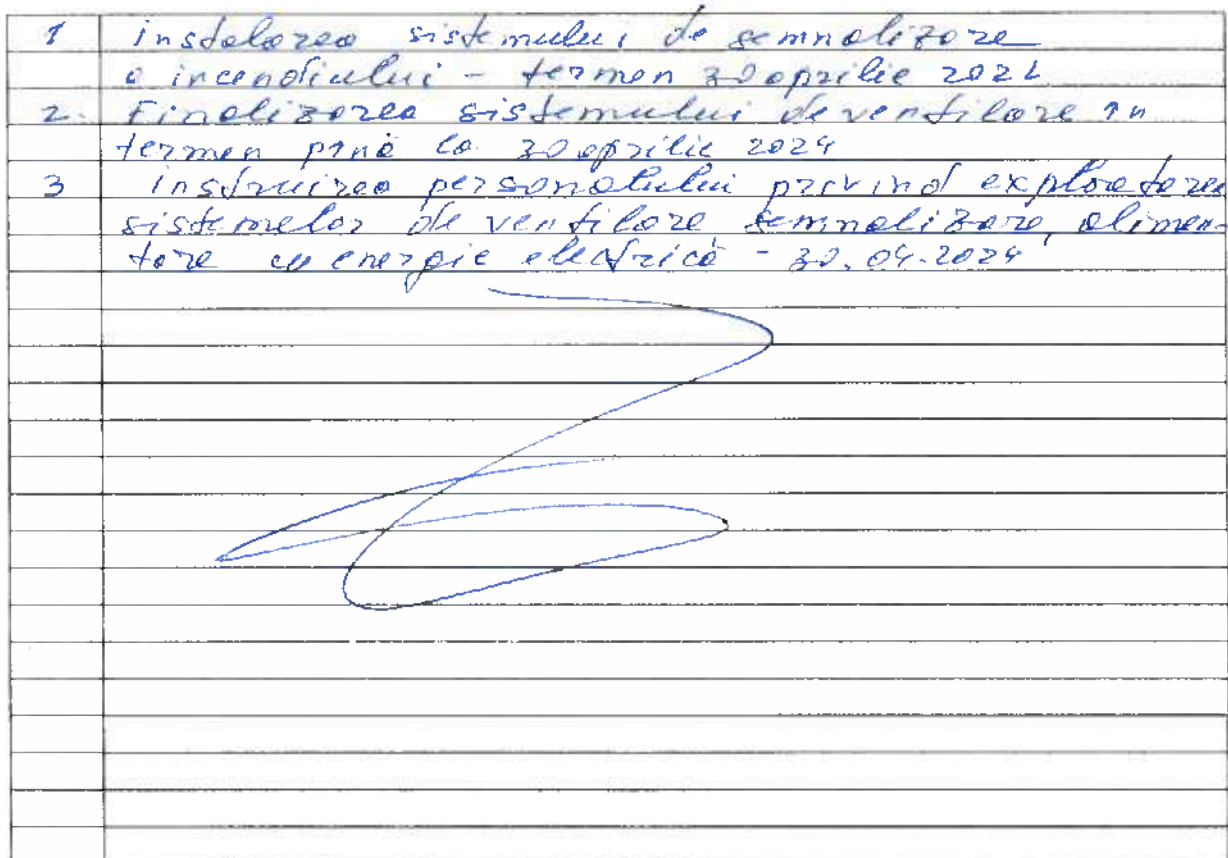 1 instalarea sistemului de semnalizare
a incendiului - termen 30 aprilie 2024
2. Finalizarea sistemului de ventilare în
termen pînă la 30 aprilie 2024
3 instruirea personalului privind exploatarea
sistemelor de ventilare semnalizare, alimen-
tare cu energie electrică - 30.04.2024